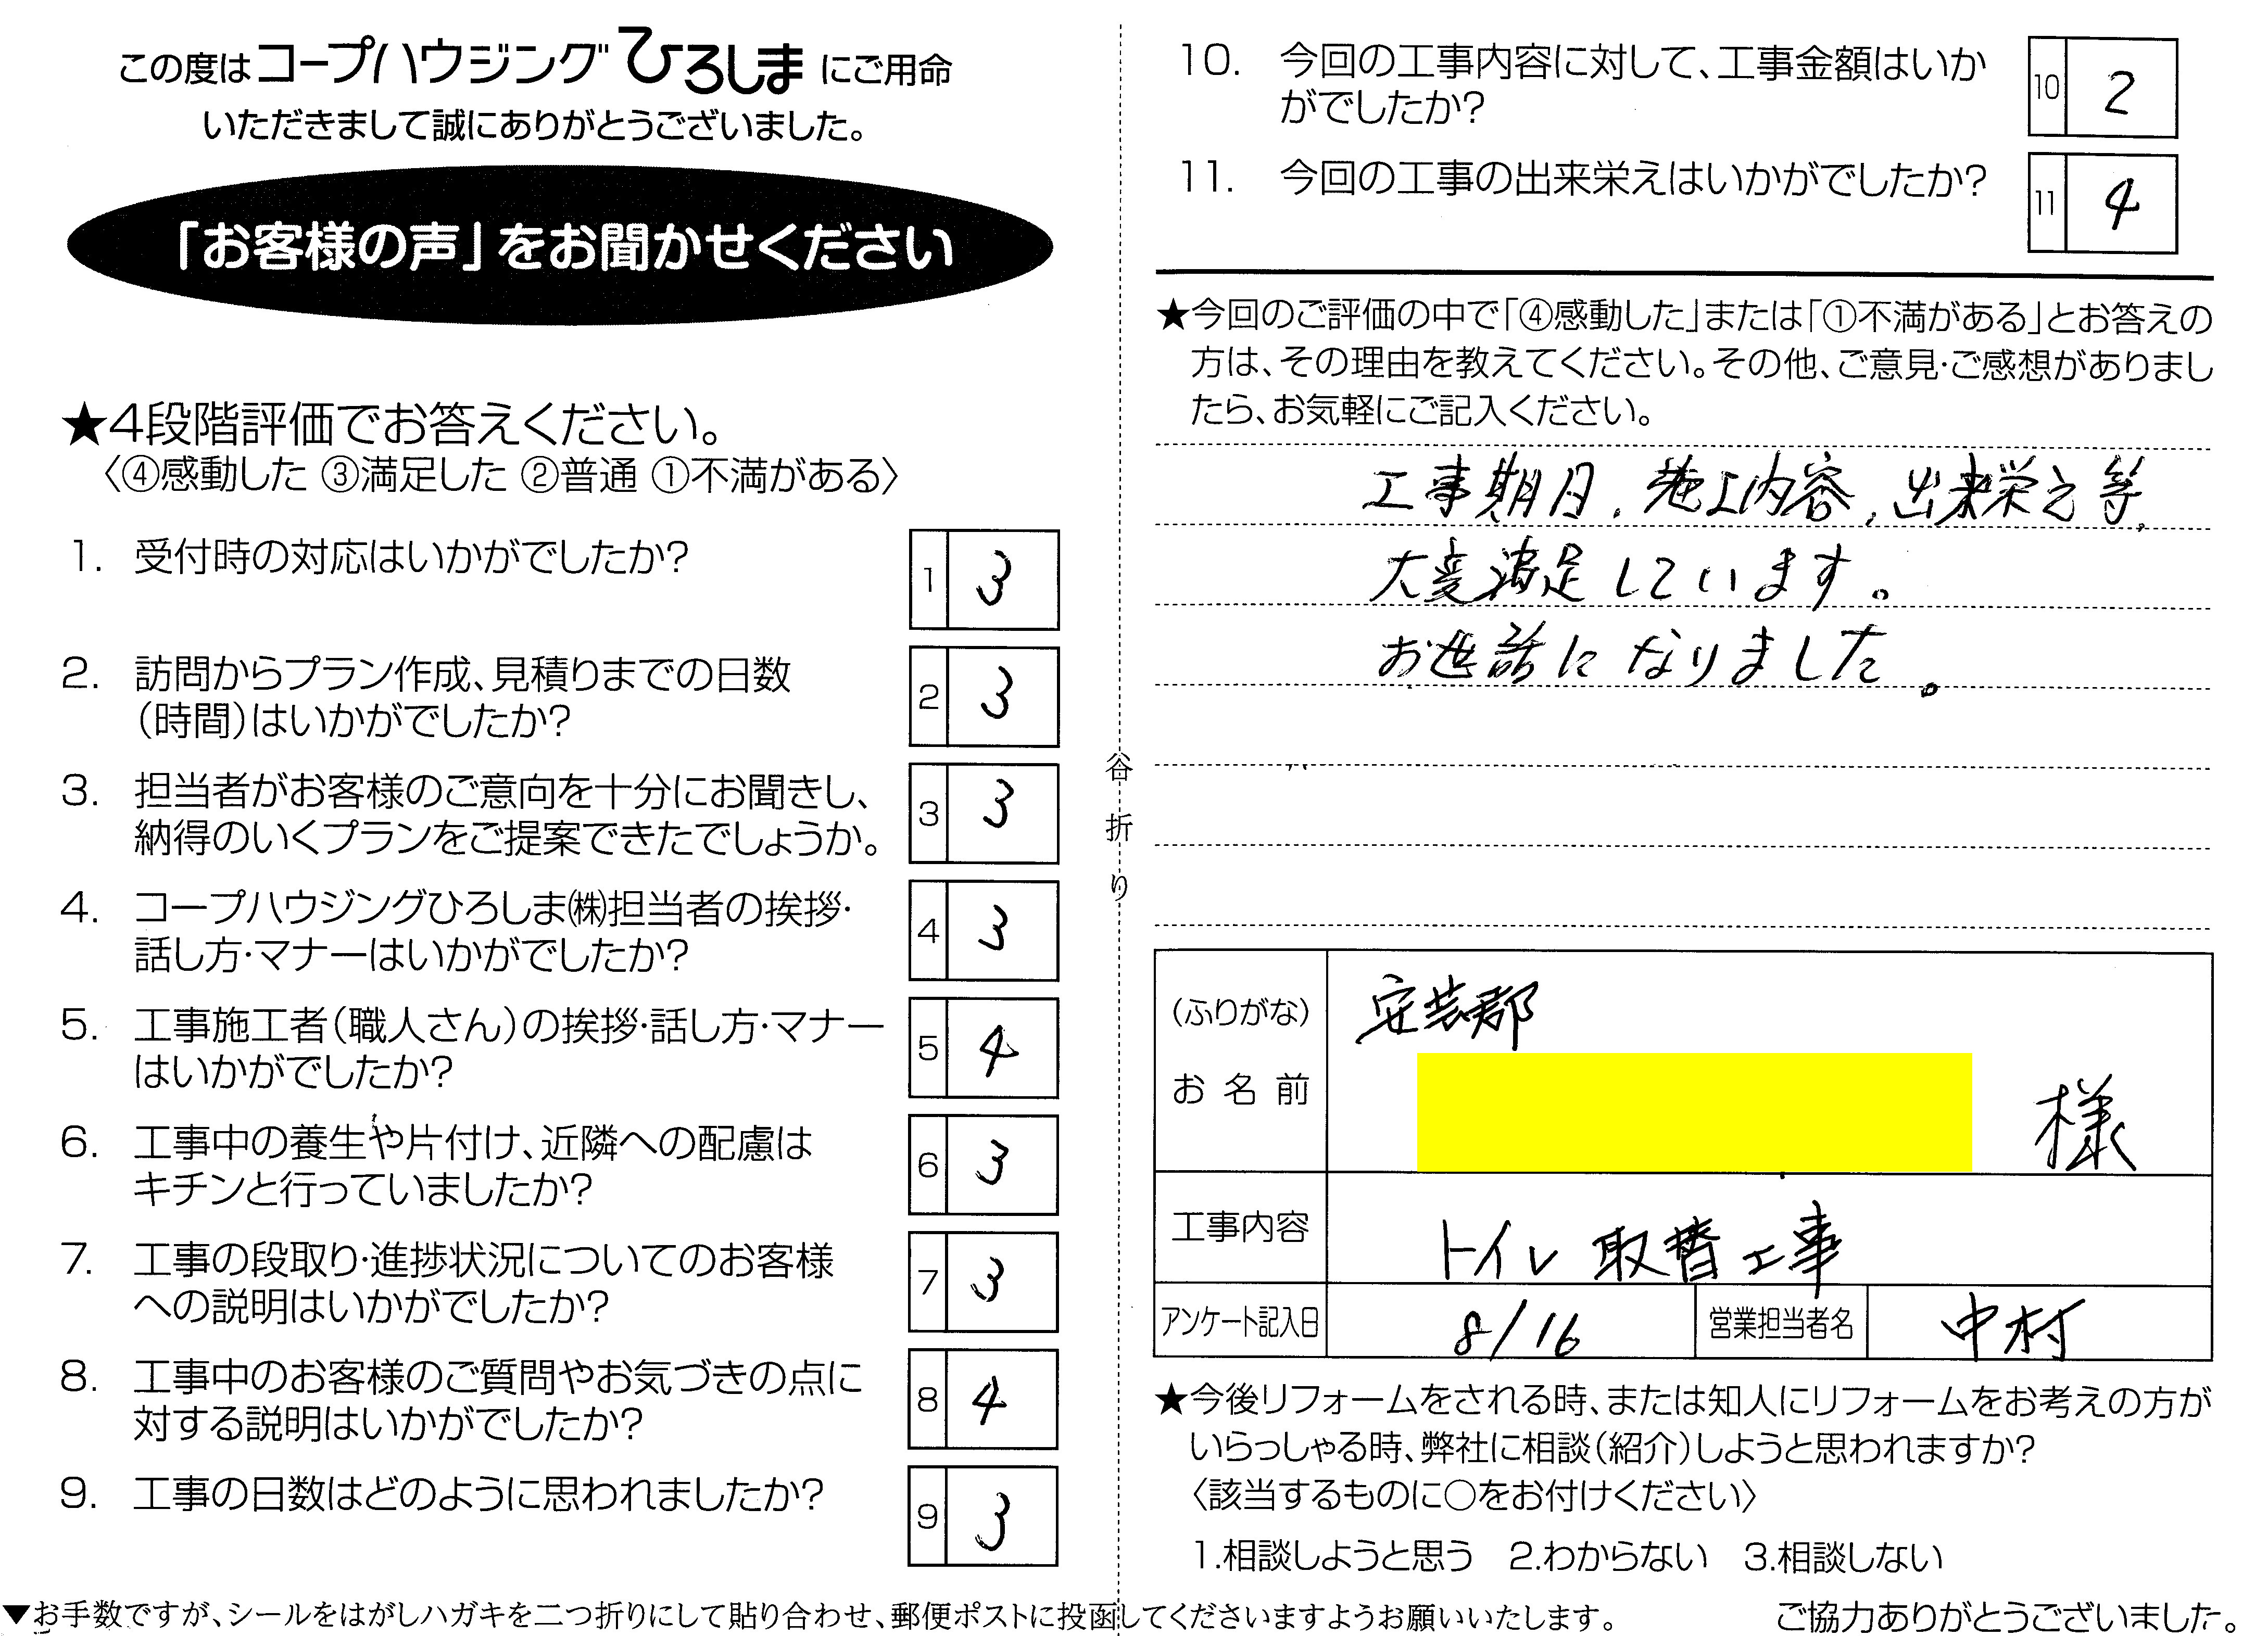 この度はコープハウジングひろしまにご用命
いただきまして誠にありがとうございました。
「お客様の声」をお聞かせください
★4段階評価でお答えください。
〈④感動した ③満足した ②普通 ①不満がある〉
1. 受付時の対応はいかがでしたか?
1 3
2. 訪問からプラン作成、見積りまでの日数
(時間)はいかがでしたか?
2 3
3. 担当者がお客様のご意向を十分にお聞きし、
納得のいくプランをご提案できたでしょうか。
3 3
4. コープハウジングひろしま㈱担当者の挨拶・
話し方・マナーはいかがでしたか?
4 3
5. 工事施工者(職人さん)の挨拶・話し方・マナー
はいかがでしたか?
5 4
6. 工事中の養生や片付け、近隣への配慮は
キチンと行っていましたか?
6 3
7. 工事の段取り・進捗状況についてのお客様
への説明はいかがでしたか?
7 3
8. 工事中のお客様のご質問やお気づきの点に
対する説明はいかがでしたか?
8 4
9. 工事の日数はどのように思われましたか?
9 3
谷折り
10. 今回の工事内容に対して、工事金額はいか
がでしたか?
10 2
11. 今回の工事の出来栄えはいかがでしたか?
11 4
★今回のご評価の中で「④感動した」または「①不満がある」とお答えの
方は、その理由を教えてください。その他、ご意見・ご感想がありまし
たら、お気軽にご記入ください。
工事期日、施工内容、出来栄え等、
大変満足しています。
お世話になりました。
(ふりがな)
お名前
安芸郡
様
工事内容 トイレ取替工事
アンケート記入日 8/16 営業担当者名 中村
★今後リフォームをされる時、または知人にリフォームをお考えの方が
いらっしゃる時、弊社に相談(紹介)しようと思われますか?
〈該当するものに○をお付けください〉
1.相談しようと思う 2.わからない 3.相談しない
▼お手数ですが、シールをはがしハガキを二つ折りにして貼り合わせ、郵便ポストに投函してくださいますようお願いいたします。
ご協力ありがとうございました。